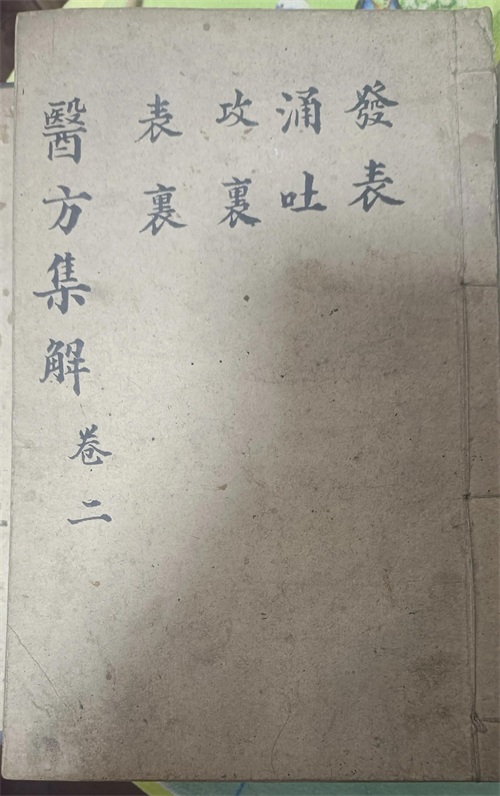 發表
涌吐
攻裏
表裏
醫方集解
卷二